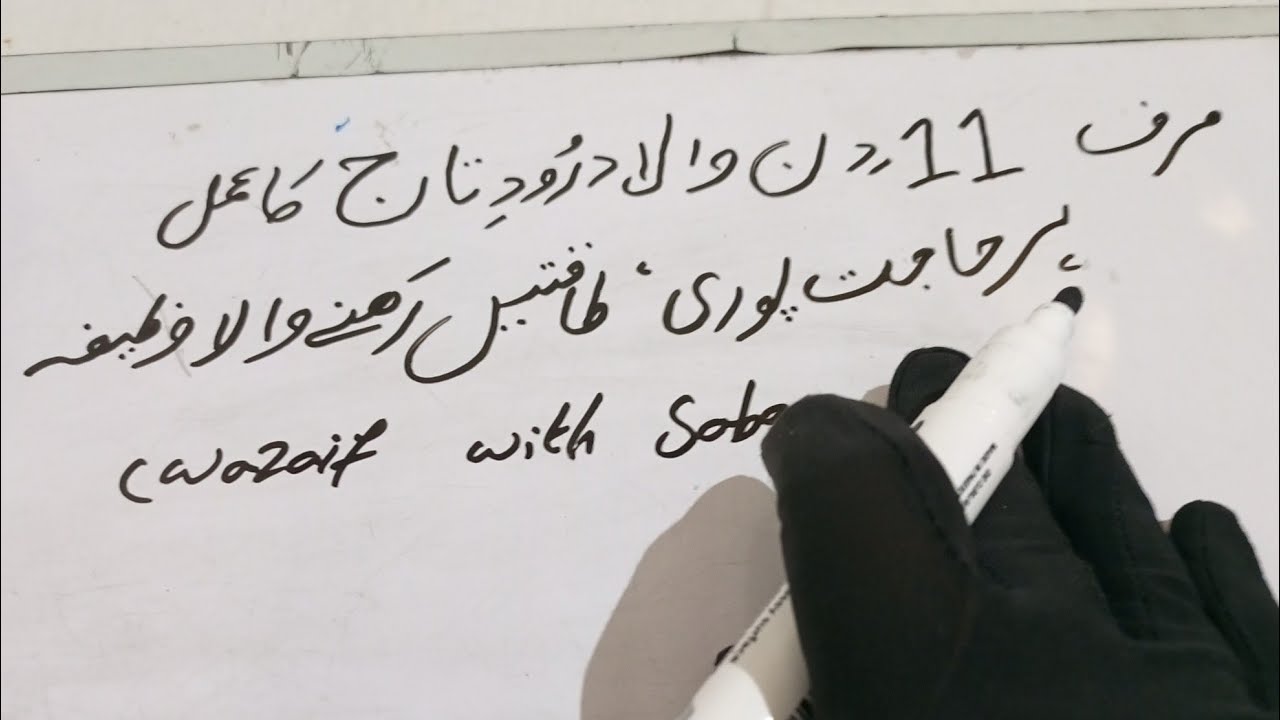 صرف 11 دن والا درُودِ تاج کا عمل
ہر حاجت پوری، طاقتیں رکھنے والا وظیفہ
(wazaif with